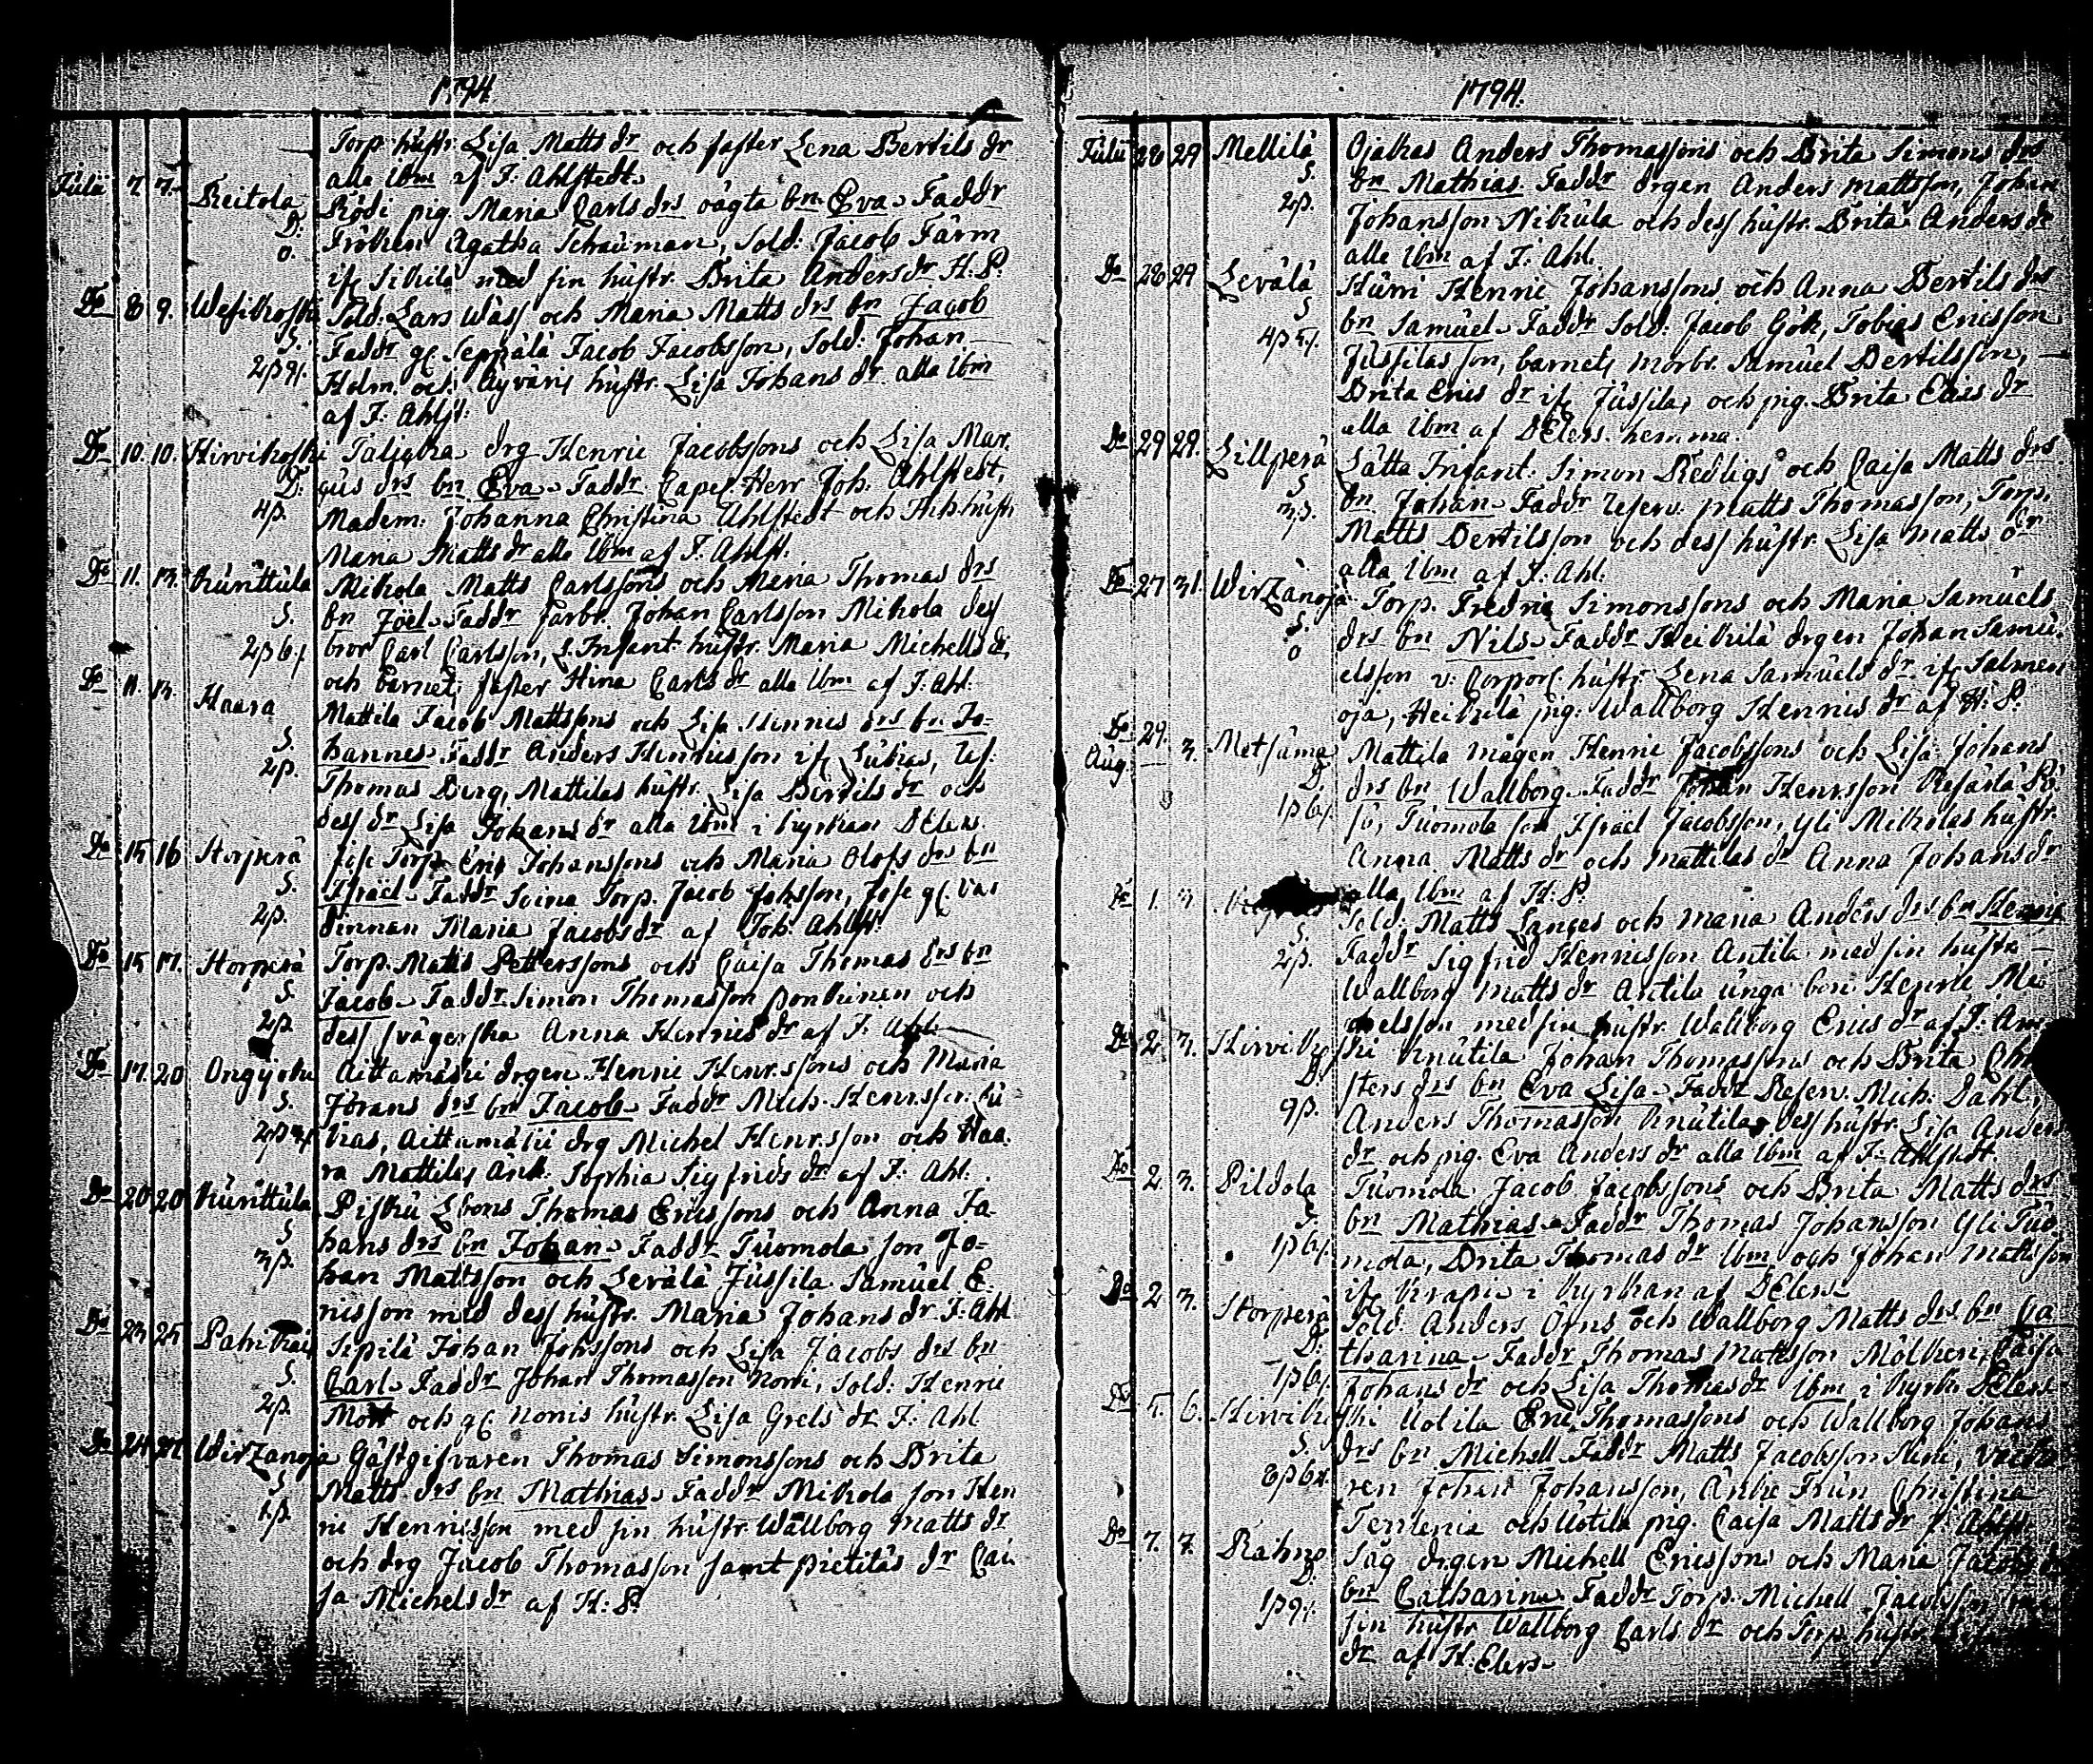 1794.
Torp. hustr. Lisa Matts dr och faster Lena Bertils dr
alla ibm af J. Ahlstedt.
Julii 7. 7. Reitola Rödi pig. Maria Carls drs oägta bn Eva Faddr
D. Fröken Agatha Schauman, Sold. Jacob Farm
o. if Sikilä med sin hustr. Brita Anders dr H. P.
Do 8 9. Wesikoski Sold. Lars Wass och Maria Matts drs bn Jacob
S. Faddr gl. Seppälä Jacob Jacobsson, Sold. Johan
2p 9/. Helm och Äyväris hustr. Lisa Johans dr alla ibm
af J. Ahlst.
Do 10. 10. Hirvikoski Taljaka drg Henric Jacobssons och Lisa Mar-
D. cus drs bn Eva Faddr Capel. Herr Joh. Ahlstedt,
4p. Madem. Johanna Christina Ahlstedt och hustr
Maria Matts dr alla ibm af J. Ahlst.
Do 11. 13. Kunttula Mikola Matts Carlssons och Maria Thomas drs
S. bn Joel Faddr farbr. Johan Carlsson Mikola des
2p 6/. bror Carl Carlsson, L. Infant. hustr. Maria Michells dr,
och barnets faster Hina Carls dr alla ibm af J. Ahl.
Do 11. 13. Haara Mattila Jacob Mattssons och Lisa Hinrics drs bn Jo-
S. hannes Faddr Anders Henricsson if Lukas, Res.
2p. Thomas Berg, Mattilas hustr. Lisa Bertils dr och
des dr Lisa Johans dr alla ibm i kyrkan DElers.
Do 15 16 Horperä Torp. Eric Johanssons och Maria Olofs drs bn
S. Israel Faddr Torp. Jacob Johsson, gl. vär
2p. dinnan Maria Jacobs dr af Joh. Ahlst.
Do 15 17. Horperä Torp. Matts Petterssons och Caisa Thomas drs bn
S. Jacob Faddr Simon Thomasson Ponkinen och
2p. dess svägerska Anna Henrics dr af J. Ahl.
Do 17. 20 Ongyoki Aittamäki drgen Henric Henr.ssons och Maria
S. Jörans drs bn Jacob Faddr Mich. Henricsson Lu
kas, Aittamäki drg Michel Henr.sson och Haa-
ra Mattilas Änk. Sophia Sigfrids dr af J. Ahl.
Do 20 20 Kunttula Piskü Lbons Thomas Ericssons och Anna Jo-
S. hans drs bn Johan Faddr Tuomola son Jo-
3p. han Mattsson och Levälä Jussila Samuel E-
ricsson med dess hustr. Maria Johans dr J. Ahl
Do 23 25 Sipilä Johan Johssons och Lisa Jacobs drs bn
S. Carl Faddr Johan Thomasson Nonni, Sold. Henric
2p. och gl. Nonis hustr. Lisa Grels dr J. Ahl
Do 24. 27. Wirzanoja Gästgifvaren Thomas Simonssons och Brita
S. Matts drs bn Mathias Faddr Mikola son Hen
ric Henricsson med sin hustr. Wallborg Matts dr
och drg Jacob Thomasson samt pietiläs dr Cai-
sa Michels dr af H. P.
1794.
Julii 28 29 Mellilä Ojalkas Anders Thomassons och Brita Simons drs
S. bn Mathias Faddr drgen Anders Mattsson, Johan
2p. Johansson Nikula och dess hustr. Brita Anders dr
alla ibm af J. Ahl.
Do 28 29 Levälä Hurri Henric Johanssons och Anna Bertils drs
S. bn Samuel Faddr Sold. Jacob Gök, Tobias Ericsson
Jussilas son, barnets morbr. Samuel Bertilsson,
Brita Erics dr if Jussila, och pig. Brita Erics dr
alla ibm af DElers. hemma.
Do 29 29. Lillperä Lätta Infant. Simon Redligs och Caisa Matts drs.
S. bn Johan Faddr Reserv. Matts Thomasson, Torp.
3p. Matts Bertilsson och dess hustr. Lisa Matts dr
alla ibm af J. Ahl.
Do 27 31. Wirzanoja Torp. Fredric Simonssons och Maria Samuels
S. drs bn Nils Faddr Heikilä drgen Johan Samu-
o elsson v. Corporl. hustr. Lena Samuels dr if Salmen
oja, Heikilä pig. Wallborg Henrics dr af H. P.
Do 29. Aug. 3. Metsämä Mattila mågen Henric Jacobssons och Lisa Johans
D. drs bn Wallborg Faddr Johan Henr.sson
1p 6/. Tuomola son Israel Jacobsson, Yli Mikolas hustr.
Anna Matts dr och Mattilas dr Anna Johans dr
alla ibm af H. P.
Do 1. 3 Sold. Matts Langes och Maria Anders drs bn Henric
S. Faddr Sigfrid Henricsson Antila med sin hustru
2p. Wallborg Matts dr Antila unga bon. Henric Mi-
chelsson med sin hustr. Wallborg Erics dr af J. Ahl
Do 2 3. Hirvikoski Knutila Johan Thomassons och Brita Chri
D. sters drs bn Eva Lisa Faddr Reserv. Mich. Dahl,
9p. Anders Thomasson Knutila, dess hustr. Lisa Anders
dr och pig. Eva Anders dr alla ibm af J. Ahlstedt.
Do 2 3. Pildola Tuomola Jacob Jacobssons och Brita Matts drs
S. bn Mathias Faddr Thomas Johansson Yli Tuo
1p 6/. mola, Brita Thomas dr ibm och Johan Mattsson
if Krapu i kyrkan af DElers
Do 2 3. Horperä Sold. Anders Örns och Wallborg Matts drs bn Ca
D. tharina Faddr Thomas Mattsson Mölkeri, Caisa
1p 6/. Johans dr och Lisa Thomas dr ibm i kyrk. DElers
Do 5. 6. Hirvikoski Uotila Eric Thomassons och Wallborg Johans
S. drs bn Michell Faddr Matts Jacobsson
ren Johan Johansson, Änke Frun Christina
och Uotila pig. Caisa Matts dr J. Ahlst.
Do 7. 7. Rahno Säg drgen Michell Ericssons och Maria
D. bn Catharina Faddr Torp. Michell Jacobsson
1p 9/. sin hustr Wallborg Carls dr och Torp. hustr
dr af H. Elers